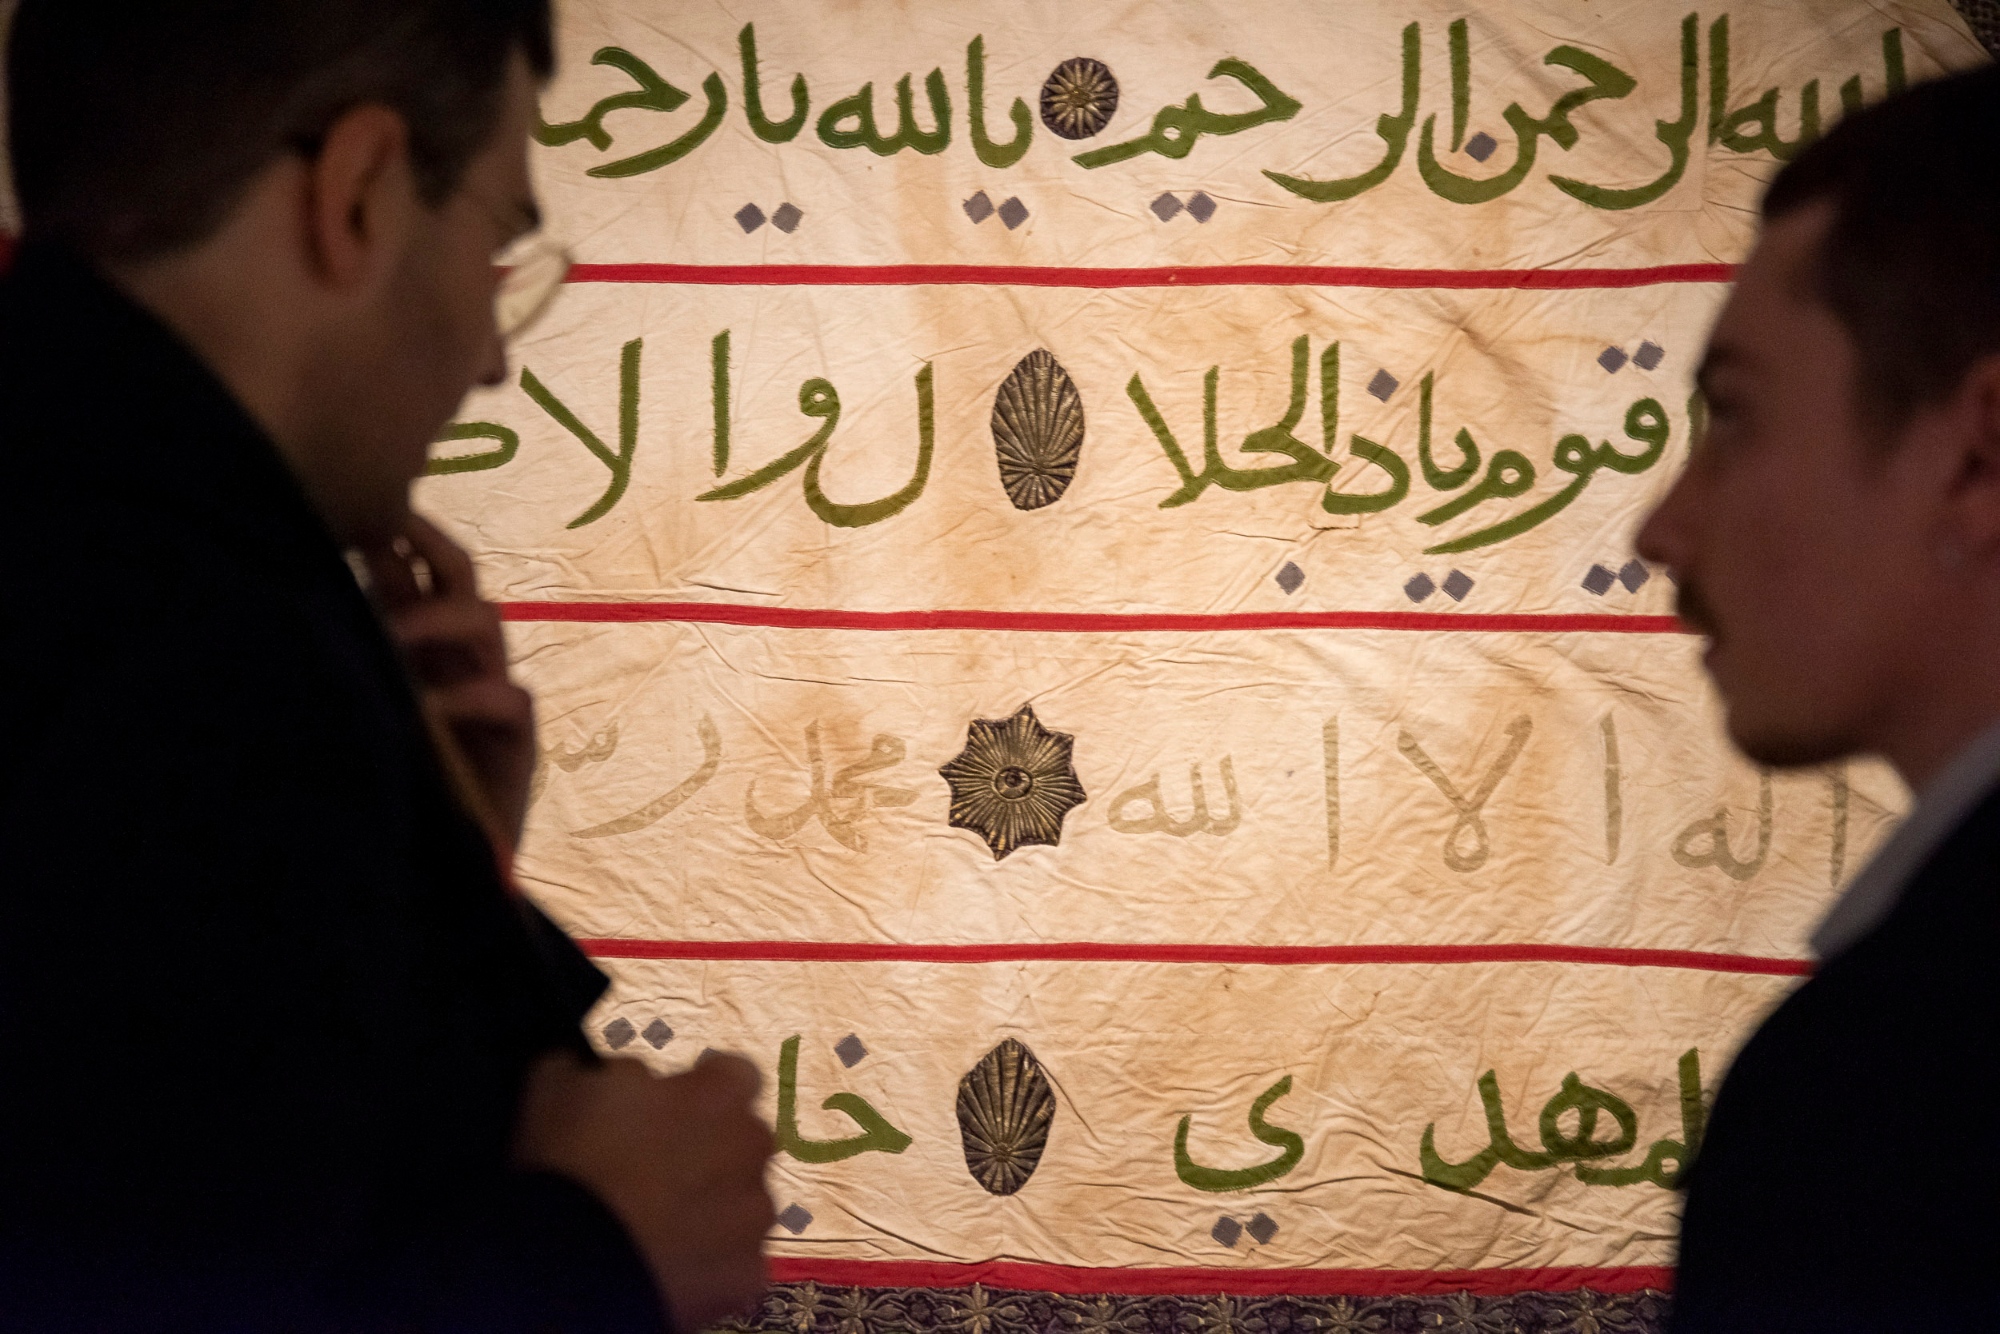 لله الرحمن الرحيم يالله يا
قيوم ياذالجلا ل والا
اله الا الله محمد
لمهدي